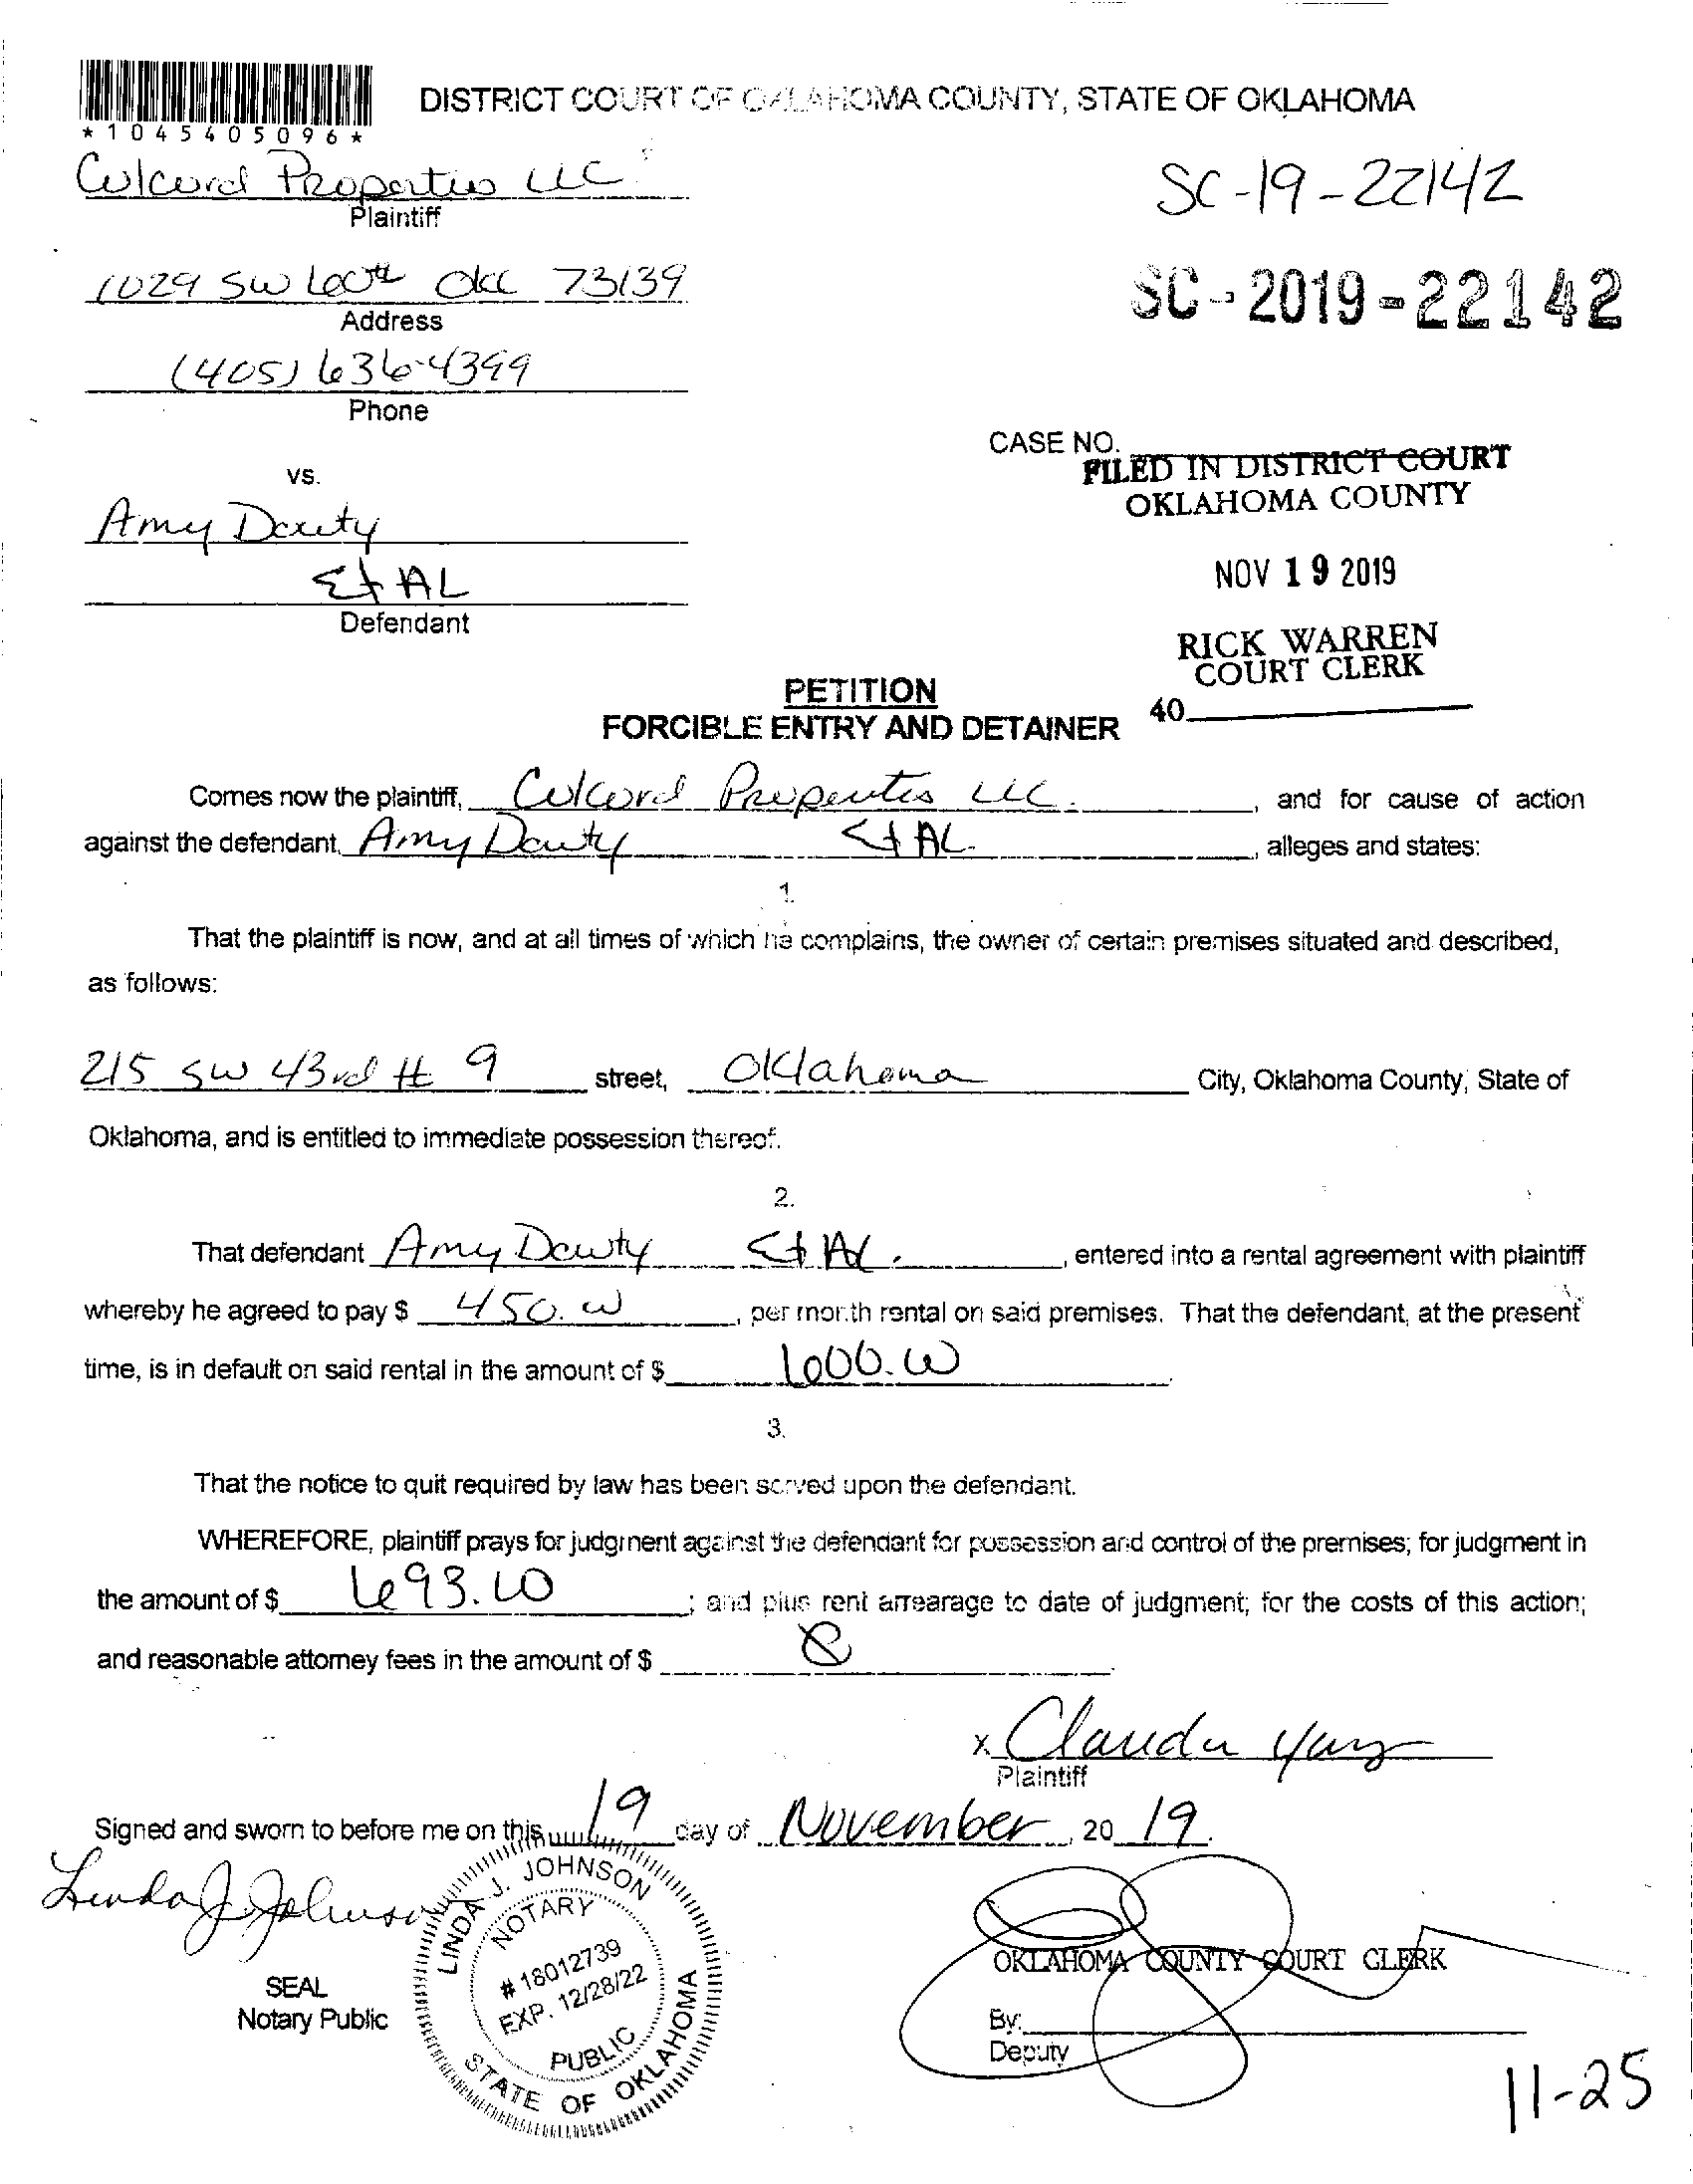 *1045405096*
DISTRICT COURT OF OKLAHOMA COUNTY, STATE OF OKLAHOMA
Colcord Properties LLC
Plaintiff
SC-19-22142
1029 SW 60th OKC 73139
Address
SC-2019-22142
(405) 636-4399
Phone
CASE NO.
FILED IN DISTRICT COURT
OKLAHOMA COUNTY
vs.
Amy Dauty
Et AL
Defendant
NOV 19 2019
RICK WARREN
COURT CLERK
40
PETITION
FORCIBLE ENTRY AND DETAINER
Comes now the plaintiff, Colcord Properties LLC. , and for cause of action
against the defendant, Amy Dauty Et AL. , alleges and states:
1.
That the plaintiff is now, and at all times of which he complains, the owner of certain premises situated and described,
as follows:
215 SW 43rd # 9 street, Oklahoma City, Oklahoma County, State of
Oklahoma, and is entitled to immediate possession thereof.
2.
That defendant Amy Dauty Et AL. , entered into a rental agreement with plaintiff
whereby he agreed to pay $ 450.00 , per month rental on said premises. That the defendant, at the present
time, is in default on said rental in the amount of $ 600.00 .
3.
That the notice to quit required by law has been served upon the defendant.
WHEREFORE, plaintiff prays for judgment against the defendant for possession and control of the premises; for judgment in
the amount of $ 693.00 ; and plus rent arrearage to date of judgment; for the costs of this action;
and reasonable attorney fees in the amount of $ .
x Claudia
Plaintiff
Signed and sworn to before me on this 19 day of November , 20 19.
Linda J Johnson
LINDA J. JOHNSON
NOTARY
# 18012739
EXP. 12/28/22
PUBLIC
STATE OF OKLAHOMA
SEAL
Notary Public
OKLAHOMA COUNTY COURT CLERK
By:
Deputy
11-25